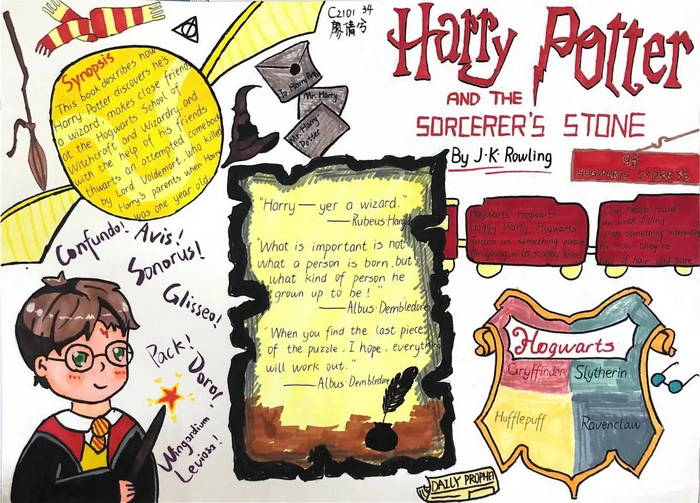 C2101 34
Harry Potter
AND THE
SORCERER'S STONE
By J·K·Rowling
Synopsis
This book describes how
Harry Potter discovers he's
a wizard, makes close friends
at the Hogwarts School of
Witchcraft and Wizardry, and
with the help of his friends
thwarts an attempted comeback
by Lord Voldemort, who killed
Harry's parents when Harry
was one year old.
To Harry
Mr. Harry
Mr. Harry
Potter
Confundo!
Avis!
Sonorus!
Glisseo!
Pack!
Doro!
Wingardium
Leviosa!
"Harry — yer a wizard."
— Rubeus
"What is important is not
what a person is born, but
what kind of person he
grown up to be!"
— Albus·Dembledore
"When you find the last piece
of the puzzle, I hope, everything
will work out."
— Albus·Dembledore
DAILY PROPHET
HOGWARTS EXPRESS
Hogwarts Hogwarts
Hoggy Warty Hogwarts
Teach us something please
Our heads
with filling
with something
Hogwarts
Gryffindor
Slytherin
Hufflepuff
Ravenclaw